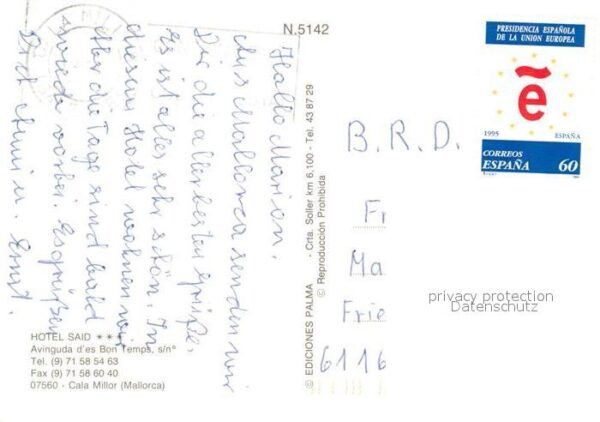 N.5142
Hallo Marion,
Aus Mallorca senden wir
Dir die allerbesten Grüße,
Es ist alles sehr schön. In
diesem Hotel wohnen wir
Aber die Tage sind bald
vorbei. Es grüßen
Dich u. Ernst.
HOTEL SAID ***
Avinguda d'es Bon Temps, s/nº
Tel. (9) 71 58 54 63
Fax (9) 71 58 60 40
07560 - Cala Millor (Mallorca)
© EDICIONES PALMA - Crta. Soller km 6.100 - Tel. 43 87 29
© Reproducción Prohibida
PRESIDENCIA ESPAÑOLA
DE LA UNION EUROPEA
e
1995 ESPAÑA
CORREOS
ESPAÑA 60
B.R.D.
Fr
Ma
Frie
6116
privacy protection
Datenschutz